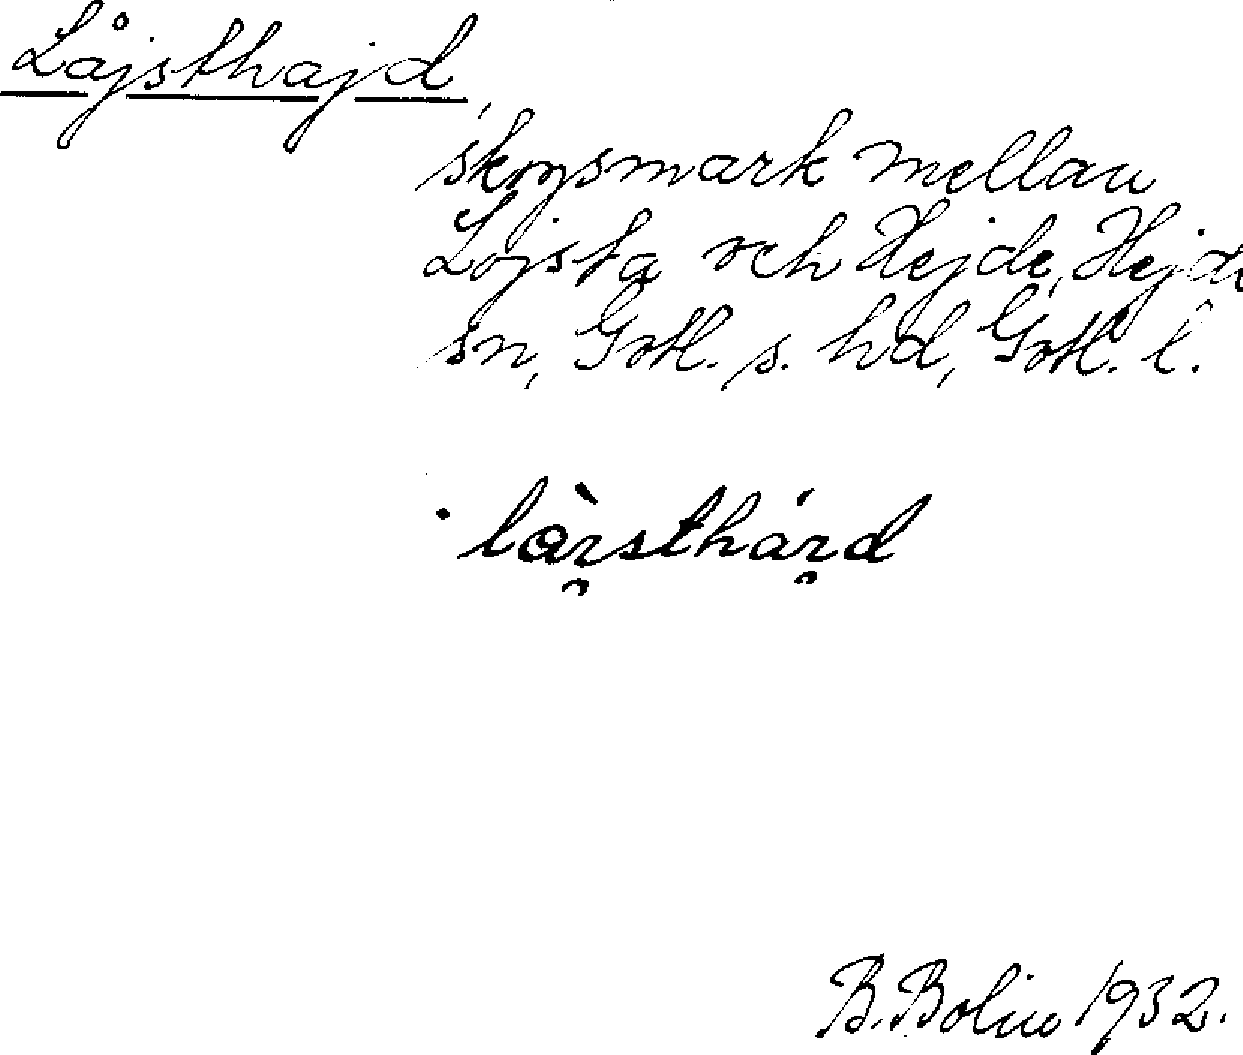 Låjsthajd,
skogsmark mellan
Lojsta och Hejde, Hejde
sn, Gotl. s. hd, Gotl. l.
B. Bolin 1932.